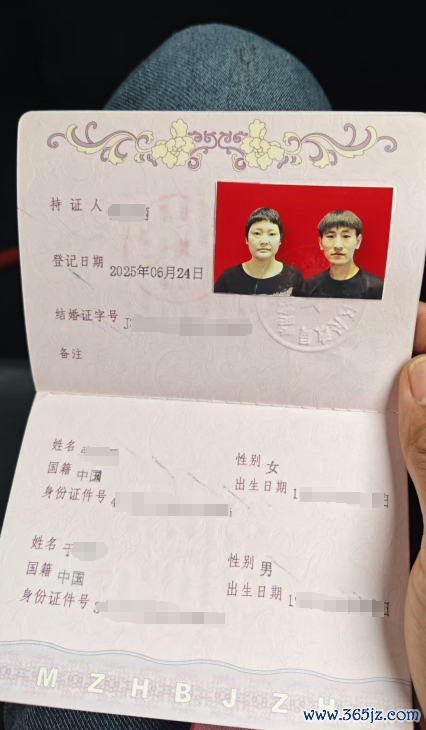 持证人
登记日期 2025年06月24日
结婚证字号 J
备注
姓名
性别 女
国籍 中国
出生日期 1
身份证件号 4
姓名 于
性别 男
国籍 中国
出生日期 19
身份证件号 3
MZHBJZH
www.365jz.com